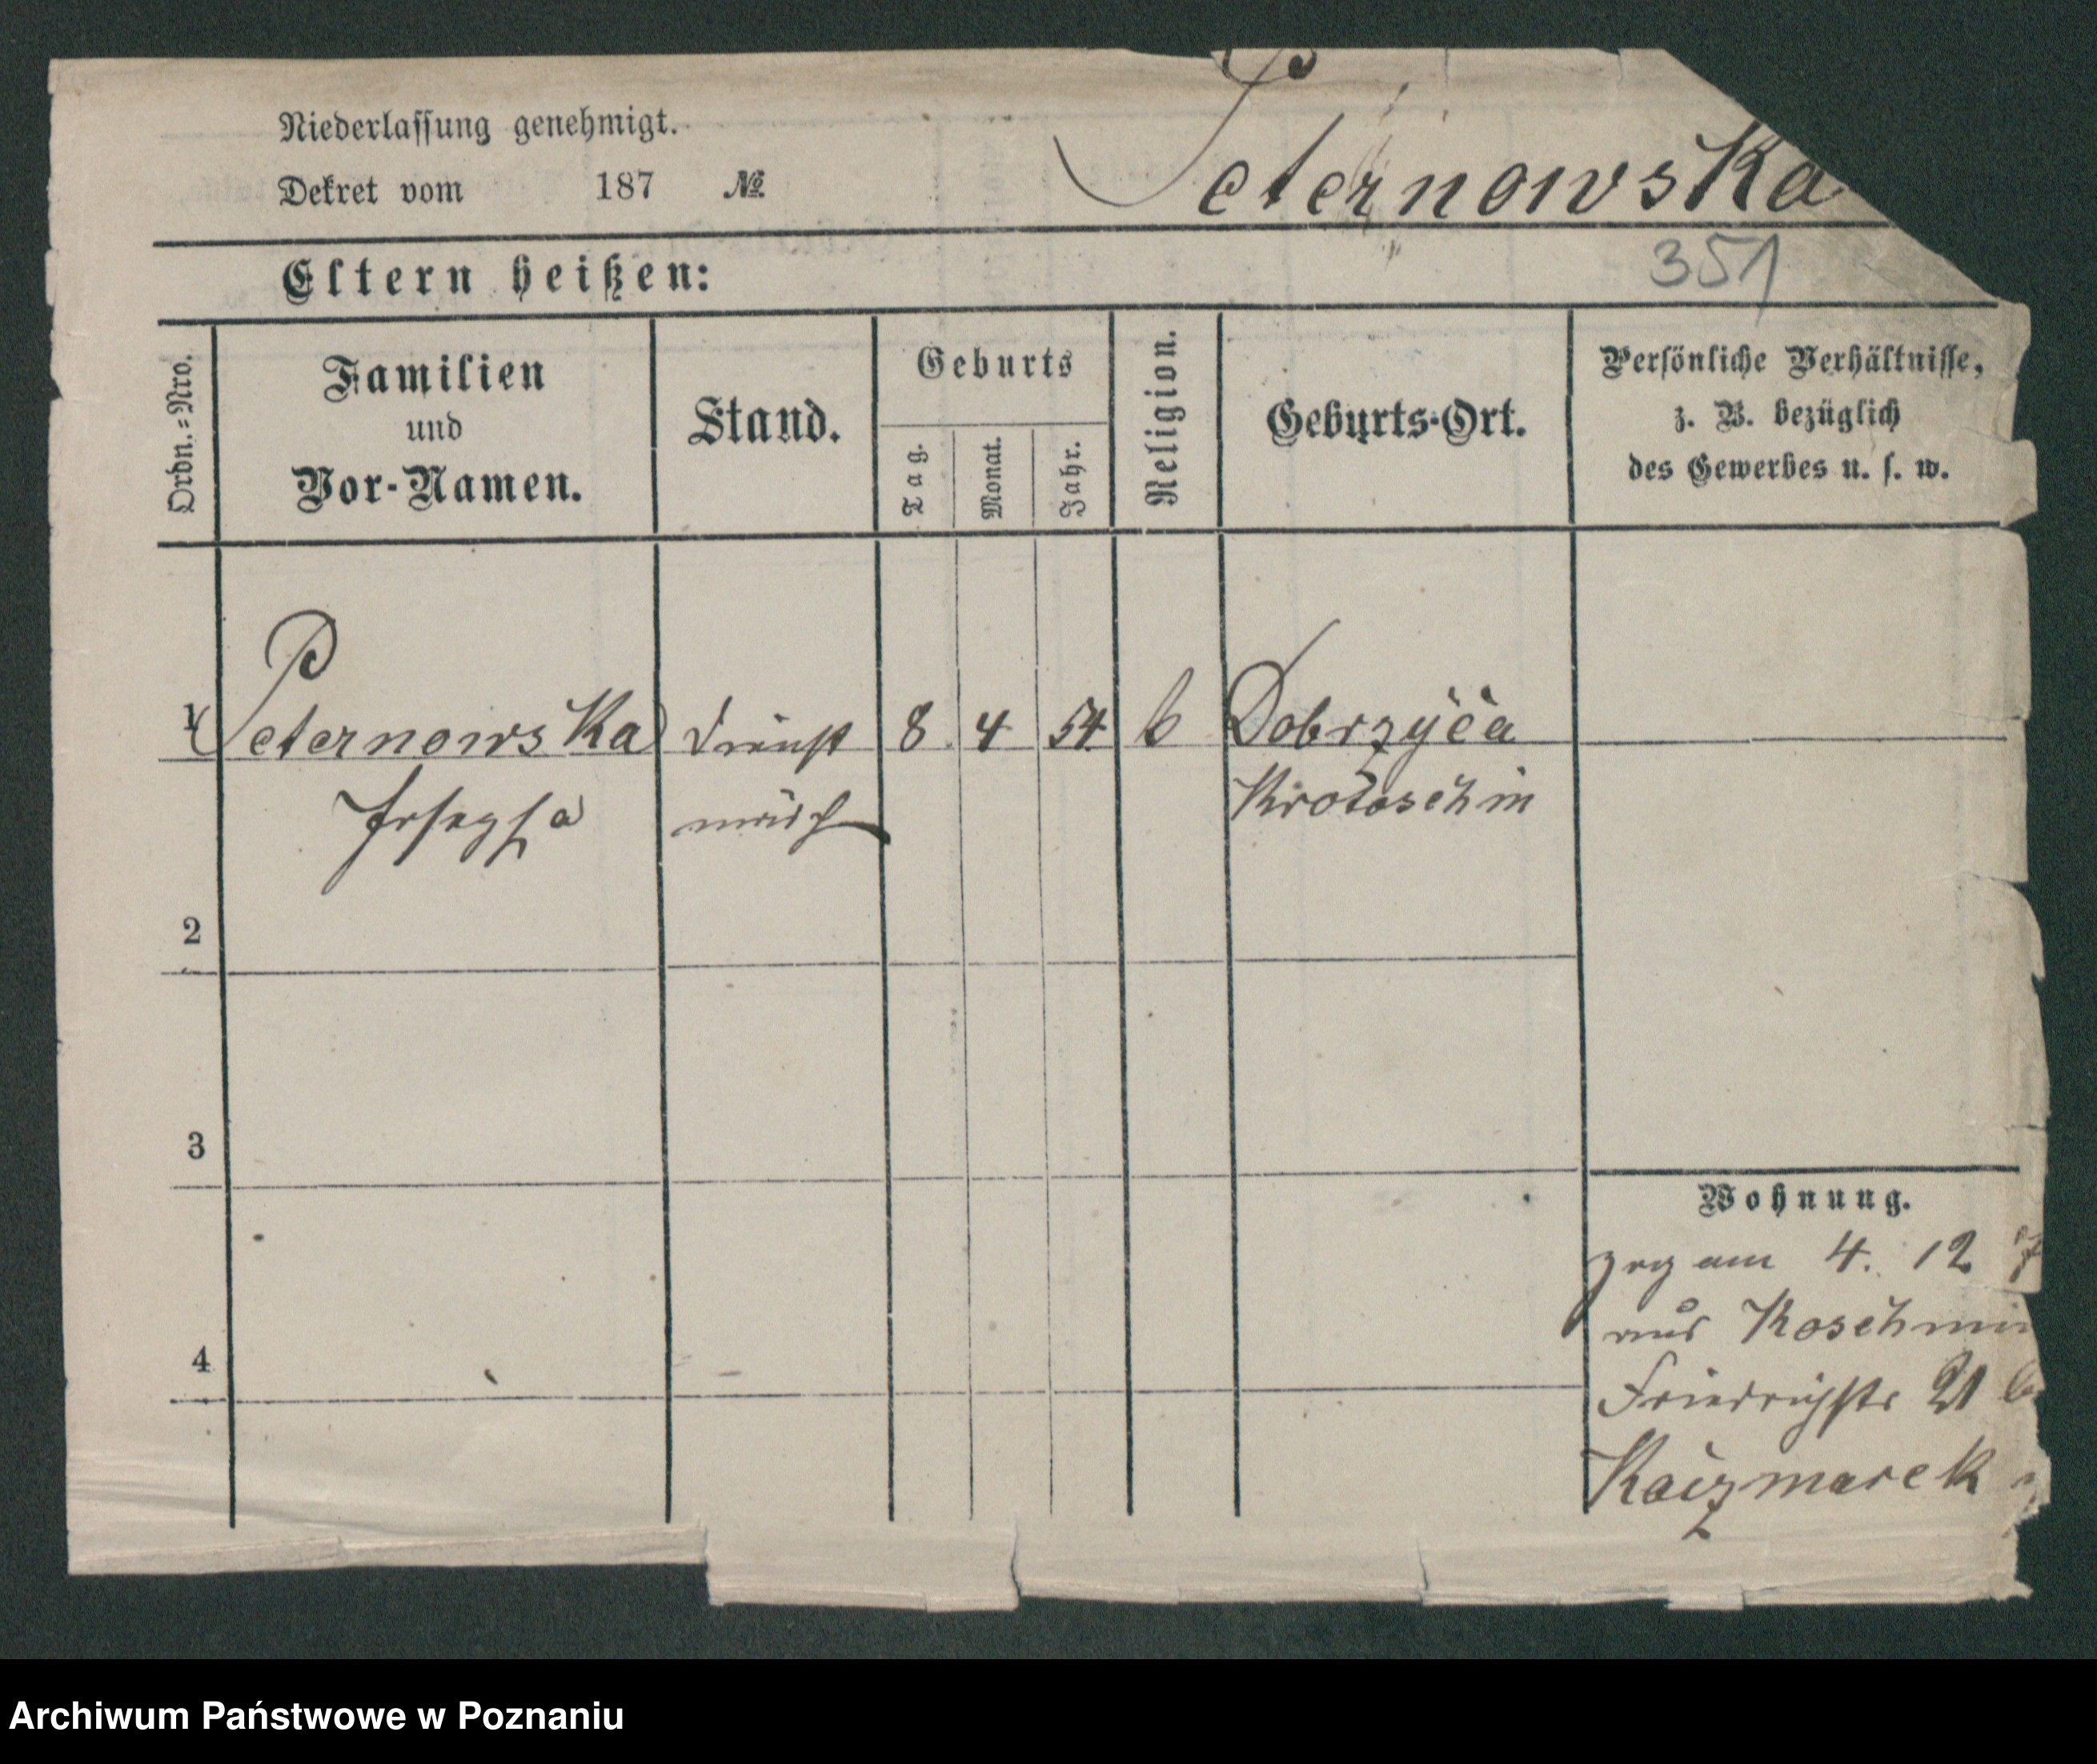 Niederlassung genehmigt.
Dekret vom 187 №
Peternowska
351
Eltern heißen:
Ordn.=Nro.
Familien
und
Vor-Namen.
Stand.
Geburts
Tag.
Monat.
Jahr.
Religion.
Geburts-Ort.
Persönliche Verhältnisse,
z. B. bezüglich
des Gewerbes u. s. w.
1 Peternowska Dienst 8 4 54 k Dobrzyca
Josepha mäd Krotoschin
2
3
4
Wohnung.
zog am 4. 12 7
aus Koschmin
Friedrichstr 21 b
Kaczmarek
Archiwum Państwowe w Poznaniu